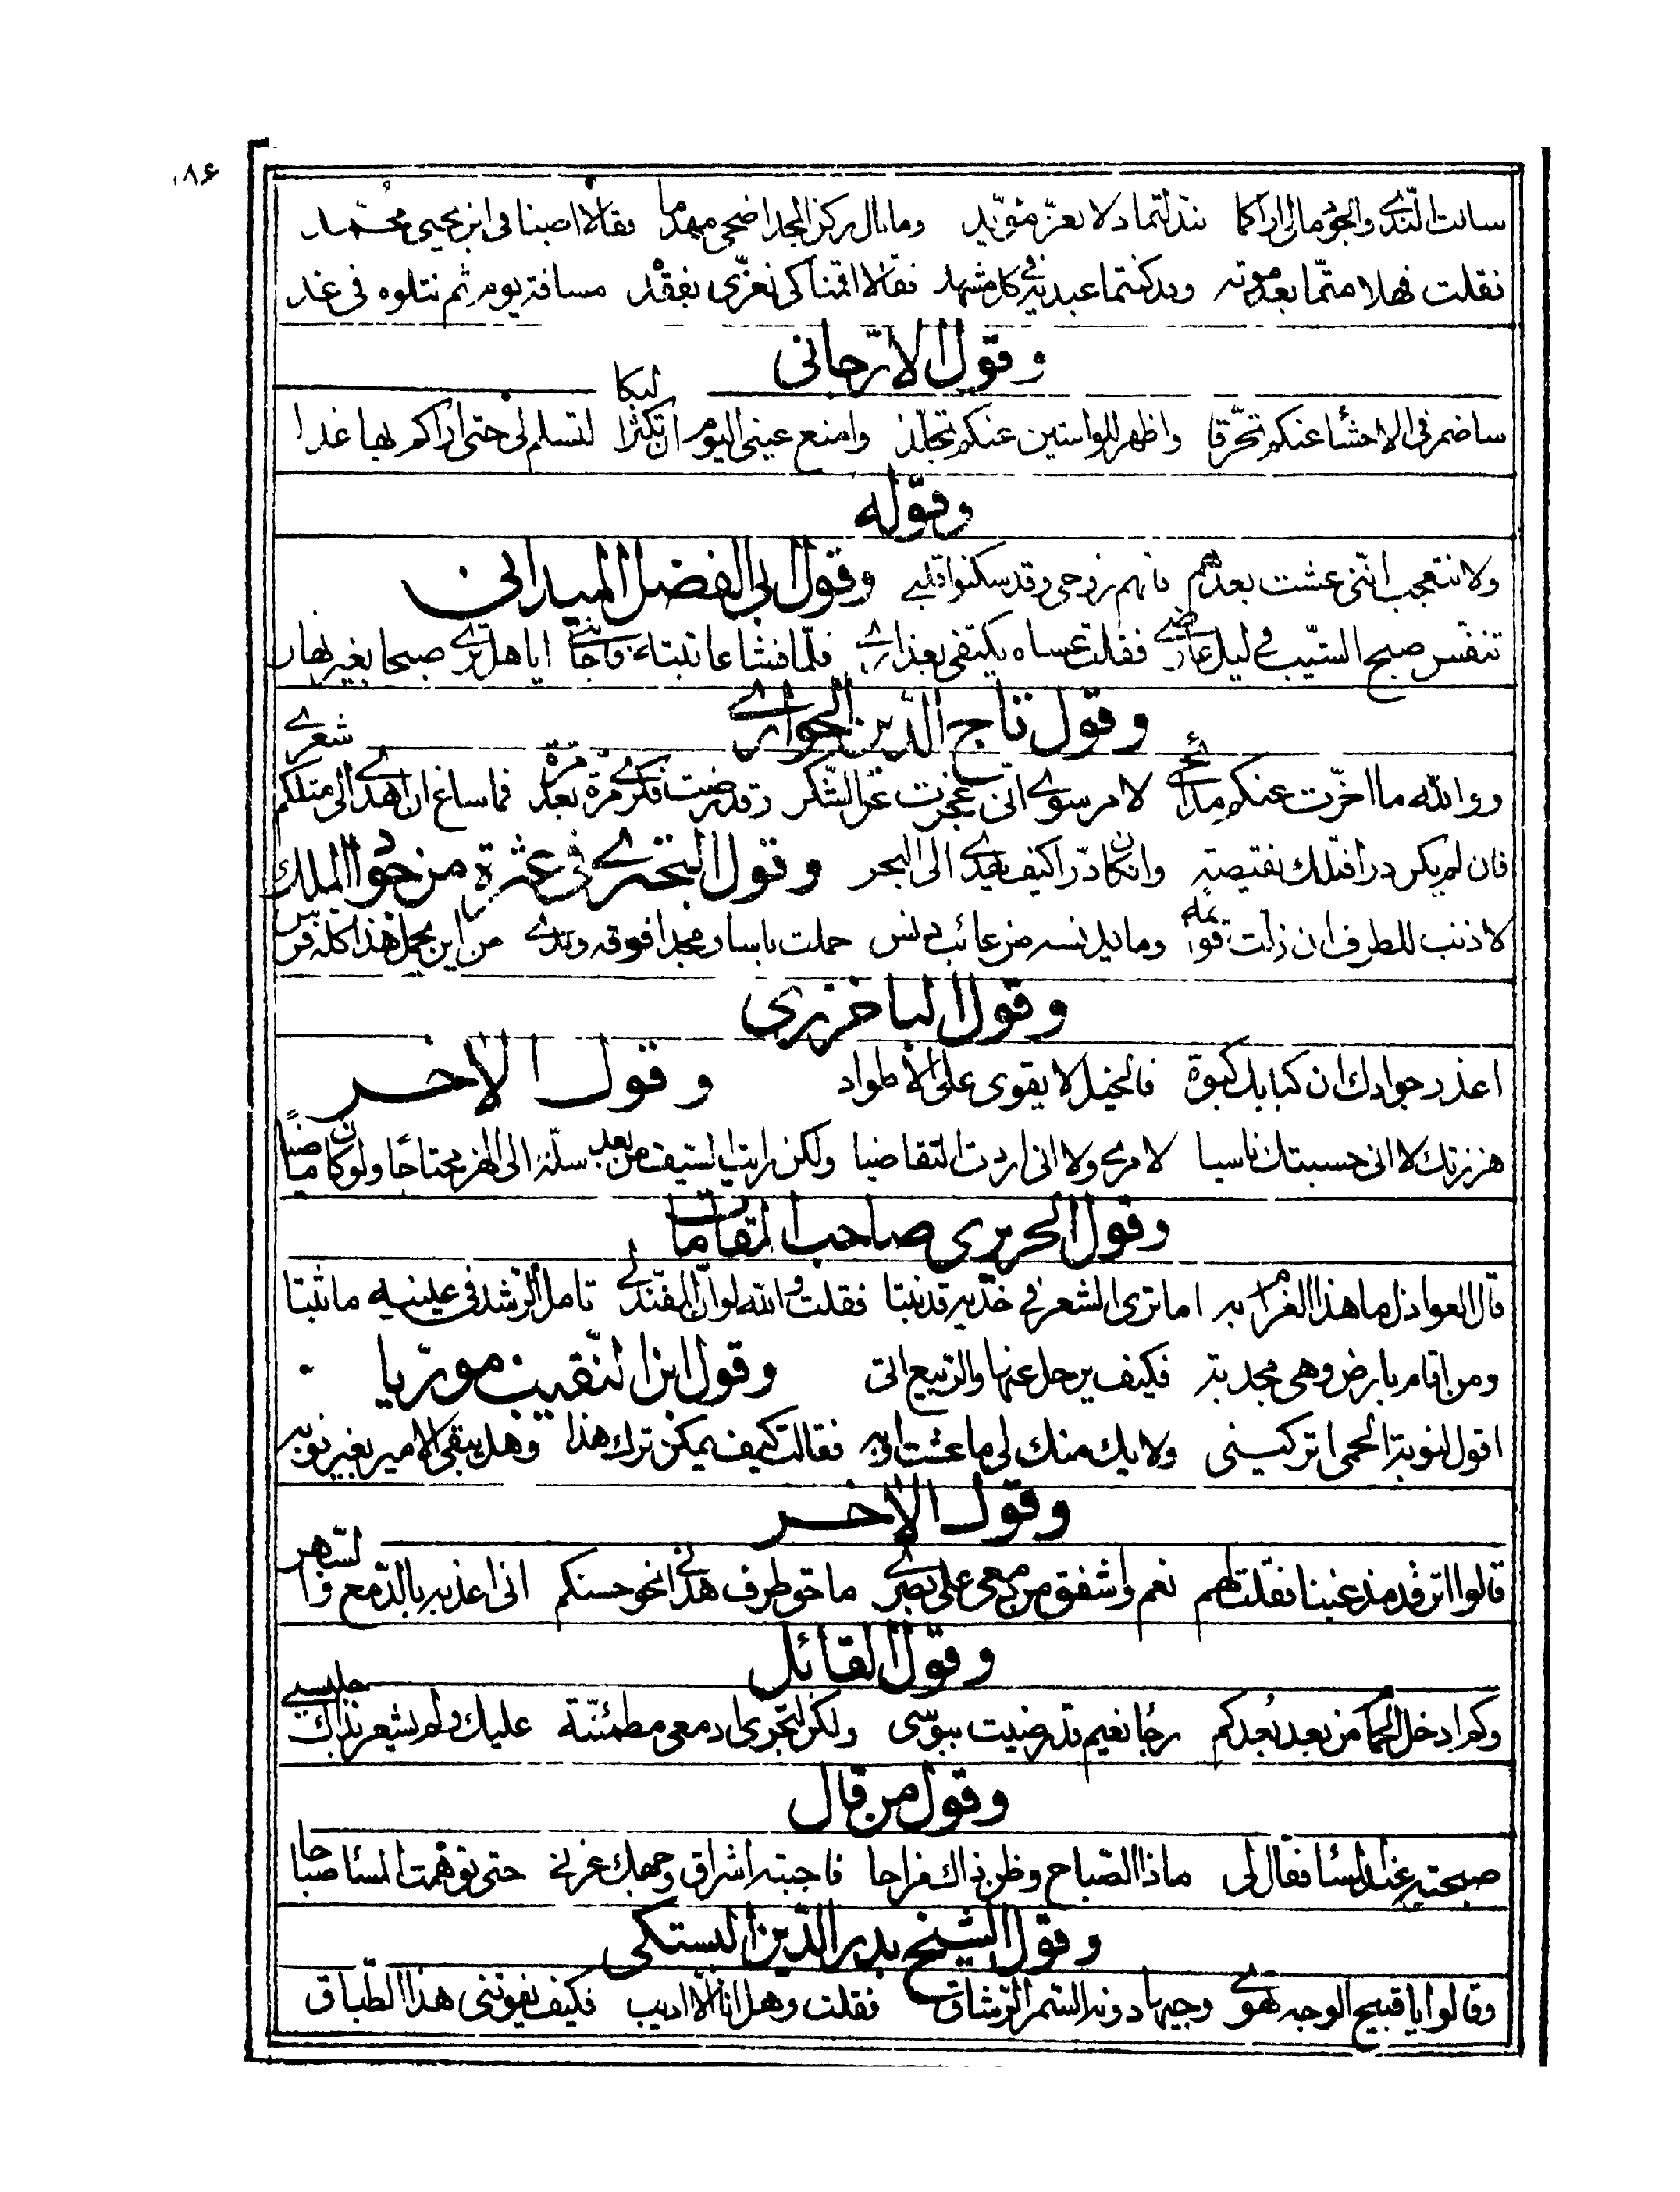 ١٨۶
سالت الندى والجود مالى اراكما تبذلتما ذلا بعز مؤبد وما بال ركن المجد اضحى مهدما فقالا اصبنا فى ابن يحيى محمد
فقلت فهلا متما بعد موته وقد كنتما عبديه فى كل مشهد فقالا اقمنا كى نعزى بفقده مسافة يوم ثم نتلوه فى غد
وقول الارّجانى
ساضمر فى الاحشاء عنكم تحرّقا واظهر للواشين عنكم تجلّدا وامنع عينى اليوم ان تكثر البكا لتسلم لى حتى اراكم بها غدا
وقوله
ولا تتعجب اننى عشت بعدهم فانهم روحى وقد سكنوا قلبى وقول ابى الفضل الميدانى
تنفّس صبح الشيب فى ليل عارضى فقلت عساه يكتفى بعذارى فلمّا فشا عاتبته فاجابنى ايا هل ترى صبحا بغير نهار
وقول تاج الدين الحوارى
ووالله ما اخّرت عنكم مدائحى لامر سوى انى عجزت عن الشكر وقد رضت فكرى مرّة بعد مرة فما ساغ ان اهدى الى مثلكم شعرى
فان لم يكن درا فتلك نقيصة وان كان درا كيف يهدى الى البحر وقول البحترى فى عثرة من جواد الملك
لا ذنب للطرف ان زلت قوائمه وما يدنسه من عائب دنس حملت باسا ومجدا فوقه وندى من اين يحمل هذا كله فرس
وقول الباخرزى
اعذر جوادك ان كبا بك كبوة فالخيل لا يقوى على الاطواد وقول الاخر
هززتك لا انى حسبتك ناسيا لامرى ولا انى اردت التقاضيا ولكن رايت السيف من بعد سلّه الى الهز محتاجا ولو كان ماضيا
وقول الحريرى صاحب المقامات
قال العواذل ما هذا الغرام به اما ترى الشعر فى خدّيه قد نبتا فقلت والله لو انّ المفنّد لى تامل الرشد فى عينيه ما ثبتا
ومن اقام بارض وهى مجدبة فكيف يرحل عنها والربيع اتى وقول ابن النقيب مورّيا
اقول لنوبة الحمى اتركينى ولا يك منك لى ما عشت اوبه فقالت كيف يمكن ترك هذا وهل يبقى الامير بغير نوبه
وقول الاخر
قالوا اترقد مذ غبنا فقلت لهم نعم واشفق من دمعى على بصرى ما حق طرف هدانى نحو حسنكم انى اعذبه بالدّمع والسّهر
وقول القائل
وكم ادخل الحمام من بعد بعدكم رجا نعيم قد رضيت ببوسى ولكن لتجرى ادمعى مطمئنّة عليك ولم يشعر بذاك جليسى
وقول من قال
صبحته عند المسا فقال لى ماذا الصّباح وظن ذاك مزاحا فاجبته اشراق وجهك غرنى حتى توهّمت المساء صباحا
وقول الشيخ بدر الدين البستكى
وقالوا يا قبيح الوجه تهوى وجيها دونه السّمر الرّشاق فقلت وهل انا الّا اديب فكيف يفوتنى هذا الطّباق